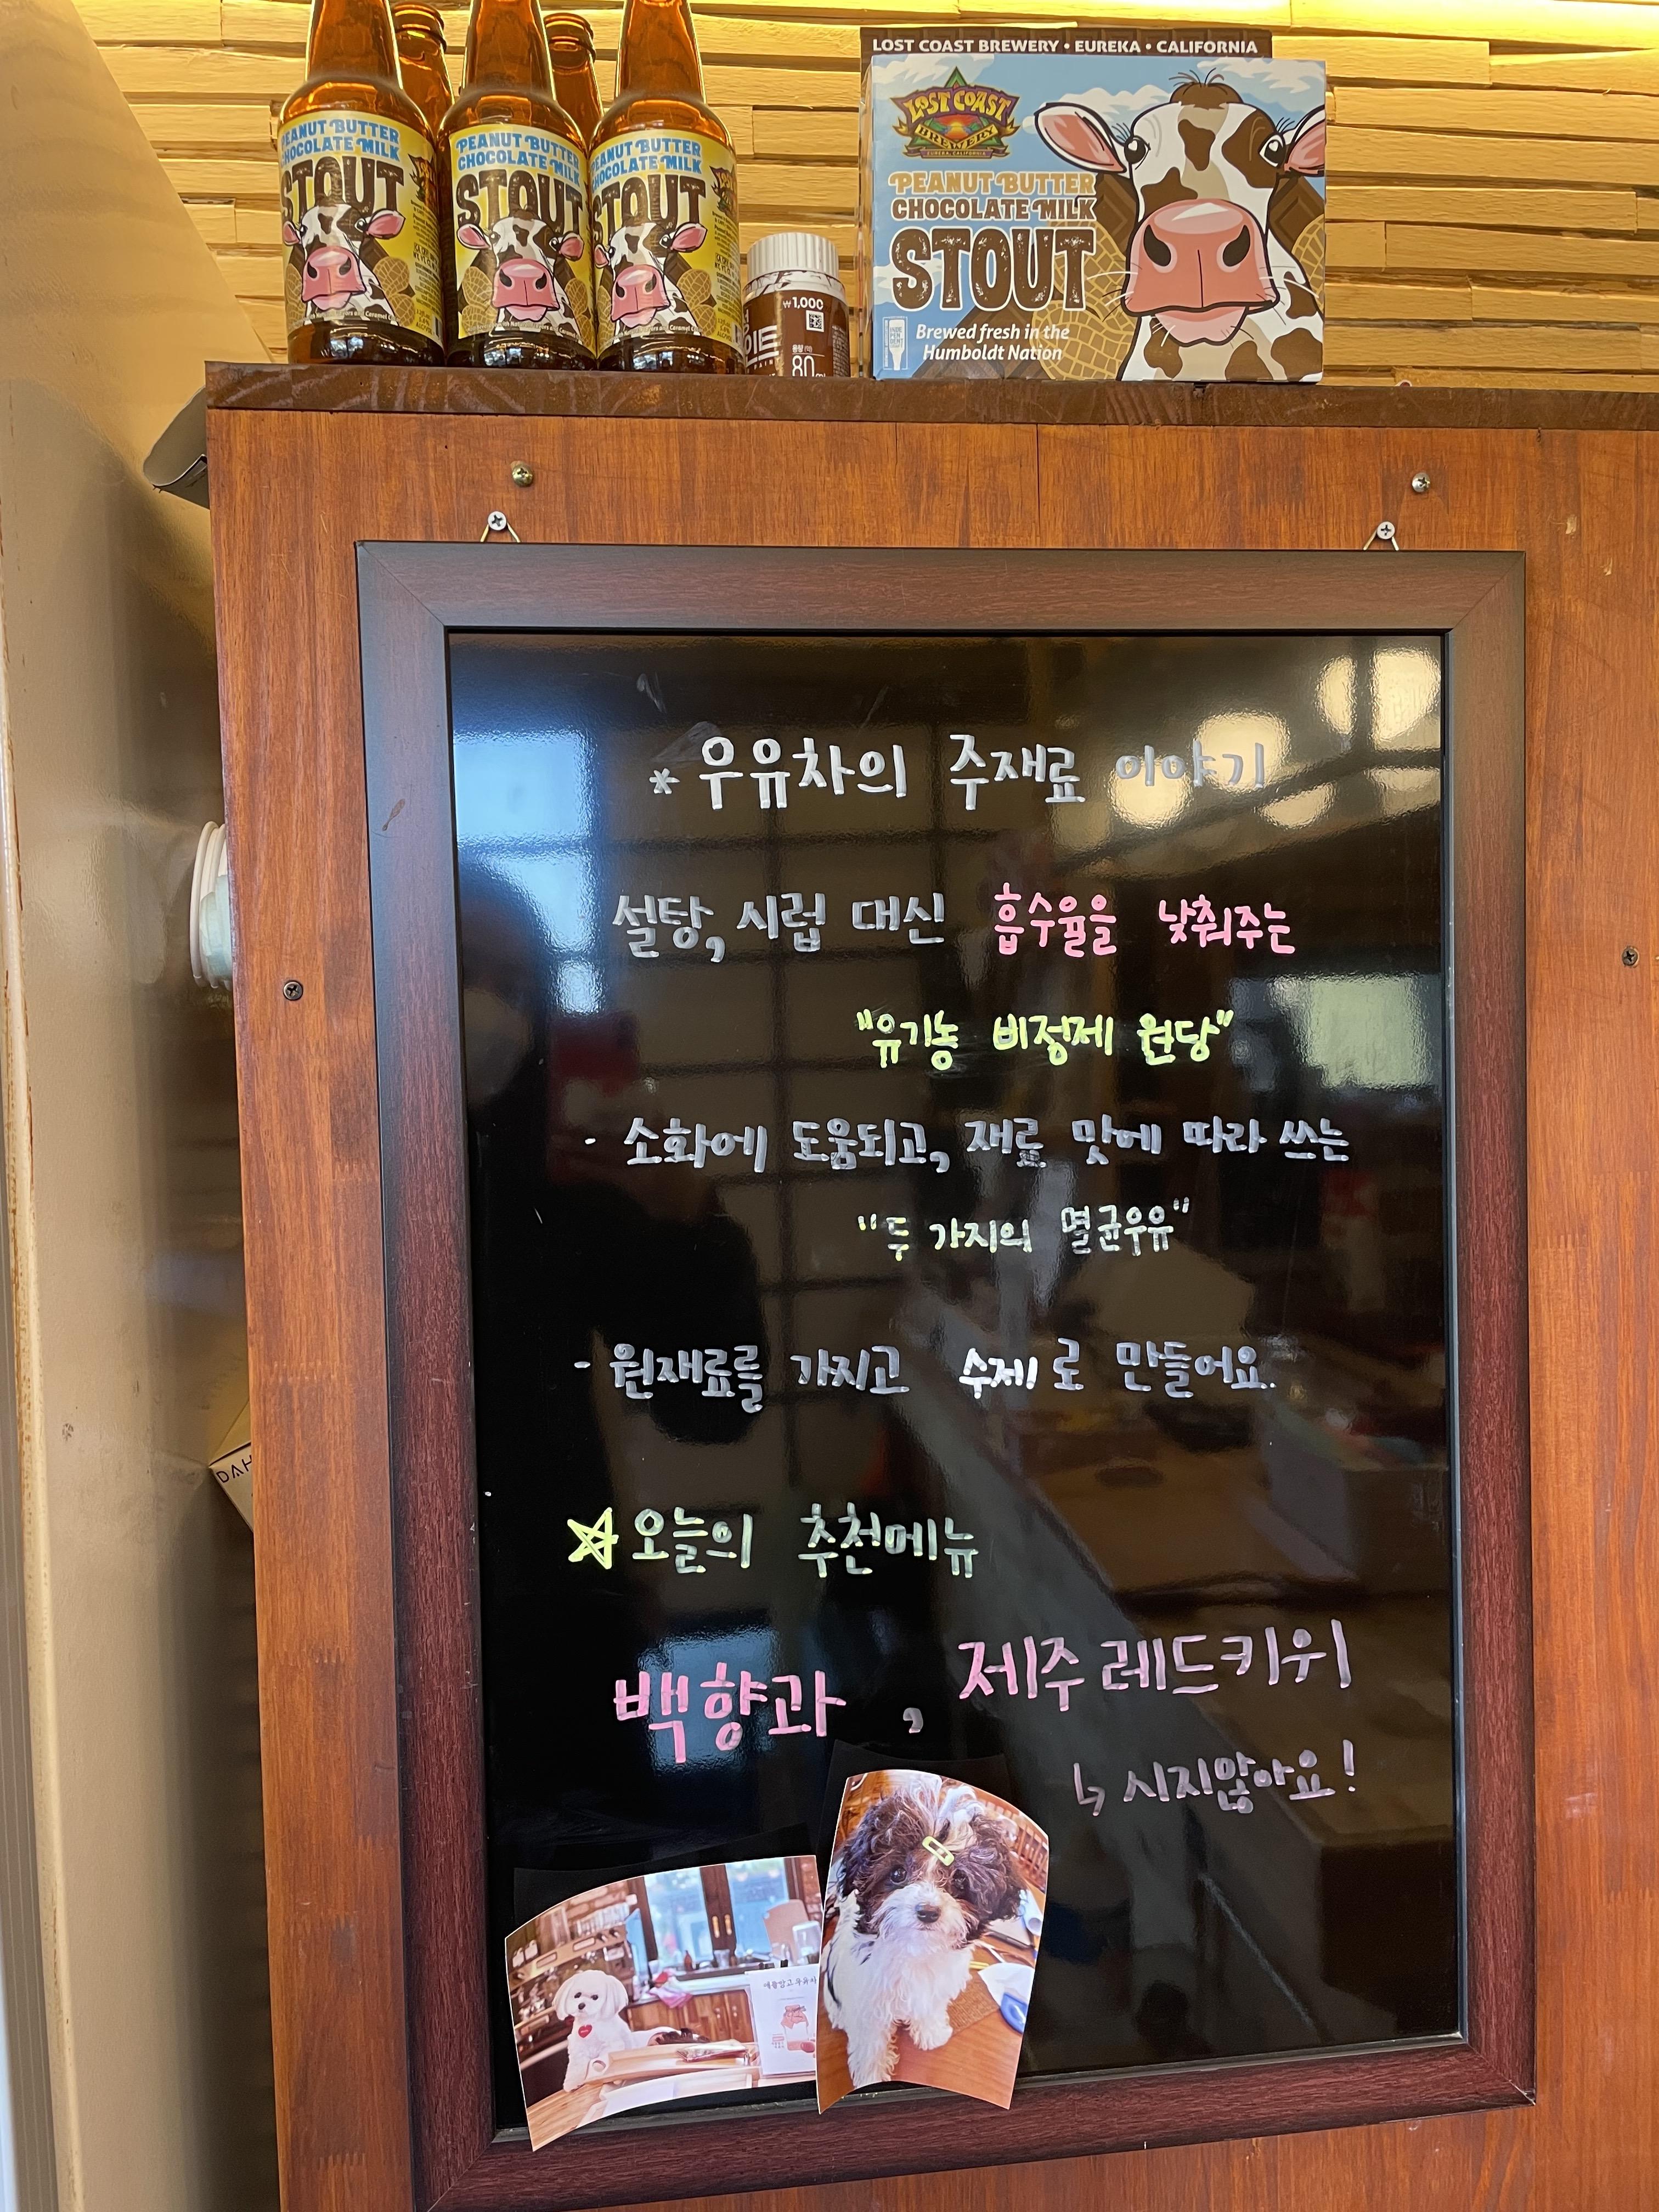 LOST COAST BREWERY • EUREKA • CALIFORNIA
PEANUT BUTTER
CHOCOLATE MILK
STOUT
PEANUT BUTTER
CHOCOLATE MILK
STOUT
PEANUT BUTTER
CHOCOLATE MILK
STOUT
₩1,000
80
LOST COAST
BREWERY
EUREKA, CALIFORNIA
PEANUT BUTTER
CHOCOLATE MILK
STOUT
Brewed fresh in the
Humboldt Nation
* 우유차의 주재료 이야기
설탕, 시럽 대신 흡수율을 낮춰주는
"유기농 비정제 원당"
- 소화에 도움되고, 재료 맛에 따라 쓰는
"두 가지의 멸균우유"
- 원재료를 가지고 수제로 만들어요.
☆ 오늘의 추천메뉴
백향과 , 제주 레드키위
↳ 시지않아요!
DAH